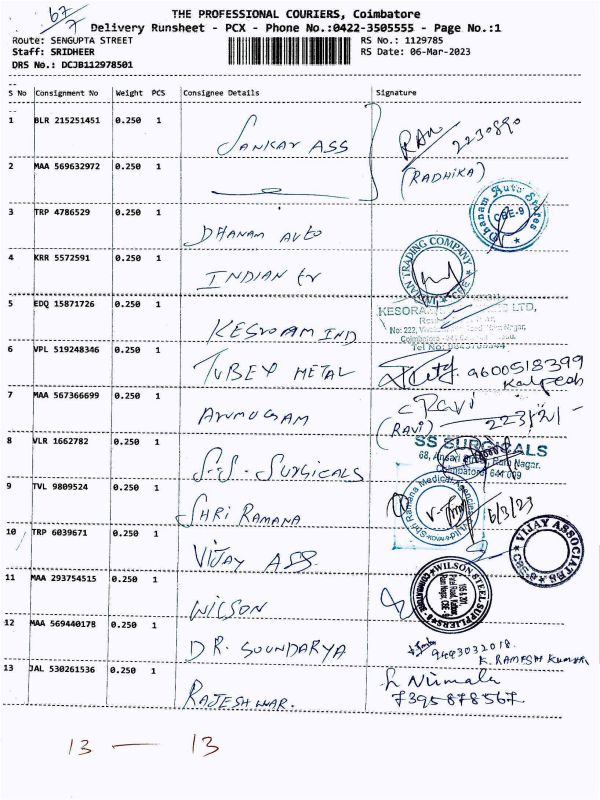 67/7
THE PROFESSIONAL COURIERS, Coimbatore
Delivery Runsheet - PCX - Phone No.:0422-3505555 - Page No.:1
Route: SENGUPTA STREET RS No.: 1129785
Staff: SRIDHEER RS Date: 06-Mar-2023
DRS No.: DCJB112978501
S No Consignment No Weight PCS Consignee Details Signature
1 BLR 215251451 0.250 1 SANKAR ASS 2230890
2 MAA 569632972 0.250 1 (RADHIKA)
3 TRP 4786529 0.250 1 DHANAM AUTO Dhanam Auto Stores CBE-9
4 KRR 5572591 0.250 1 INDIAN TRADING COMPANY
5 EDQ 15871726 0.250 1 KESROAM IND
6 VPL 519248346 0.250 1 TUBEY METAL 9600518399
Kalpesh
7 MAA 567366699 0.250 1 ARUMUGAM Ravi
(RAVI)
8 VLR 1662782 0.250 1 S.S. SURGICALS SS SURGICALS
68, Ansari Ram Nagar,
Coimbatore
9 TVL 9809524 0.250 1 SHRI RAMANA Shri Ramana Medical Agencies 6/3/23
10 TRP 6039671 0.250 1 VIJAY ASS VIJAY ASSOCIATES
11 MAA 293754515 0.250 1 WILSON WILSON STEEL SUPPLIERS
12 MAA 569440178 0.250 1 DR. SOUNDARYA 9493032018
K. RAMESH KUMAR
13 JAL 530261536 0.250 1 RAJESHWAR. Nirmala
7395878567
13 — 13